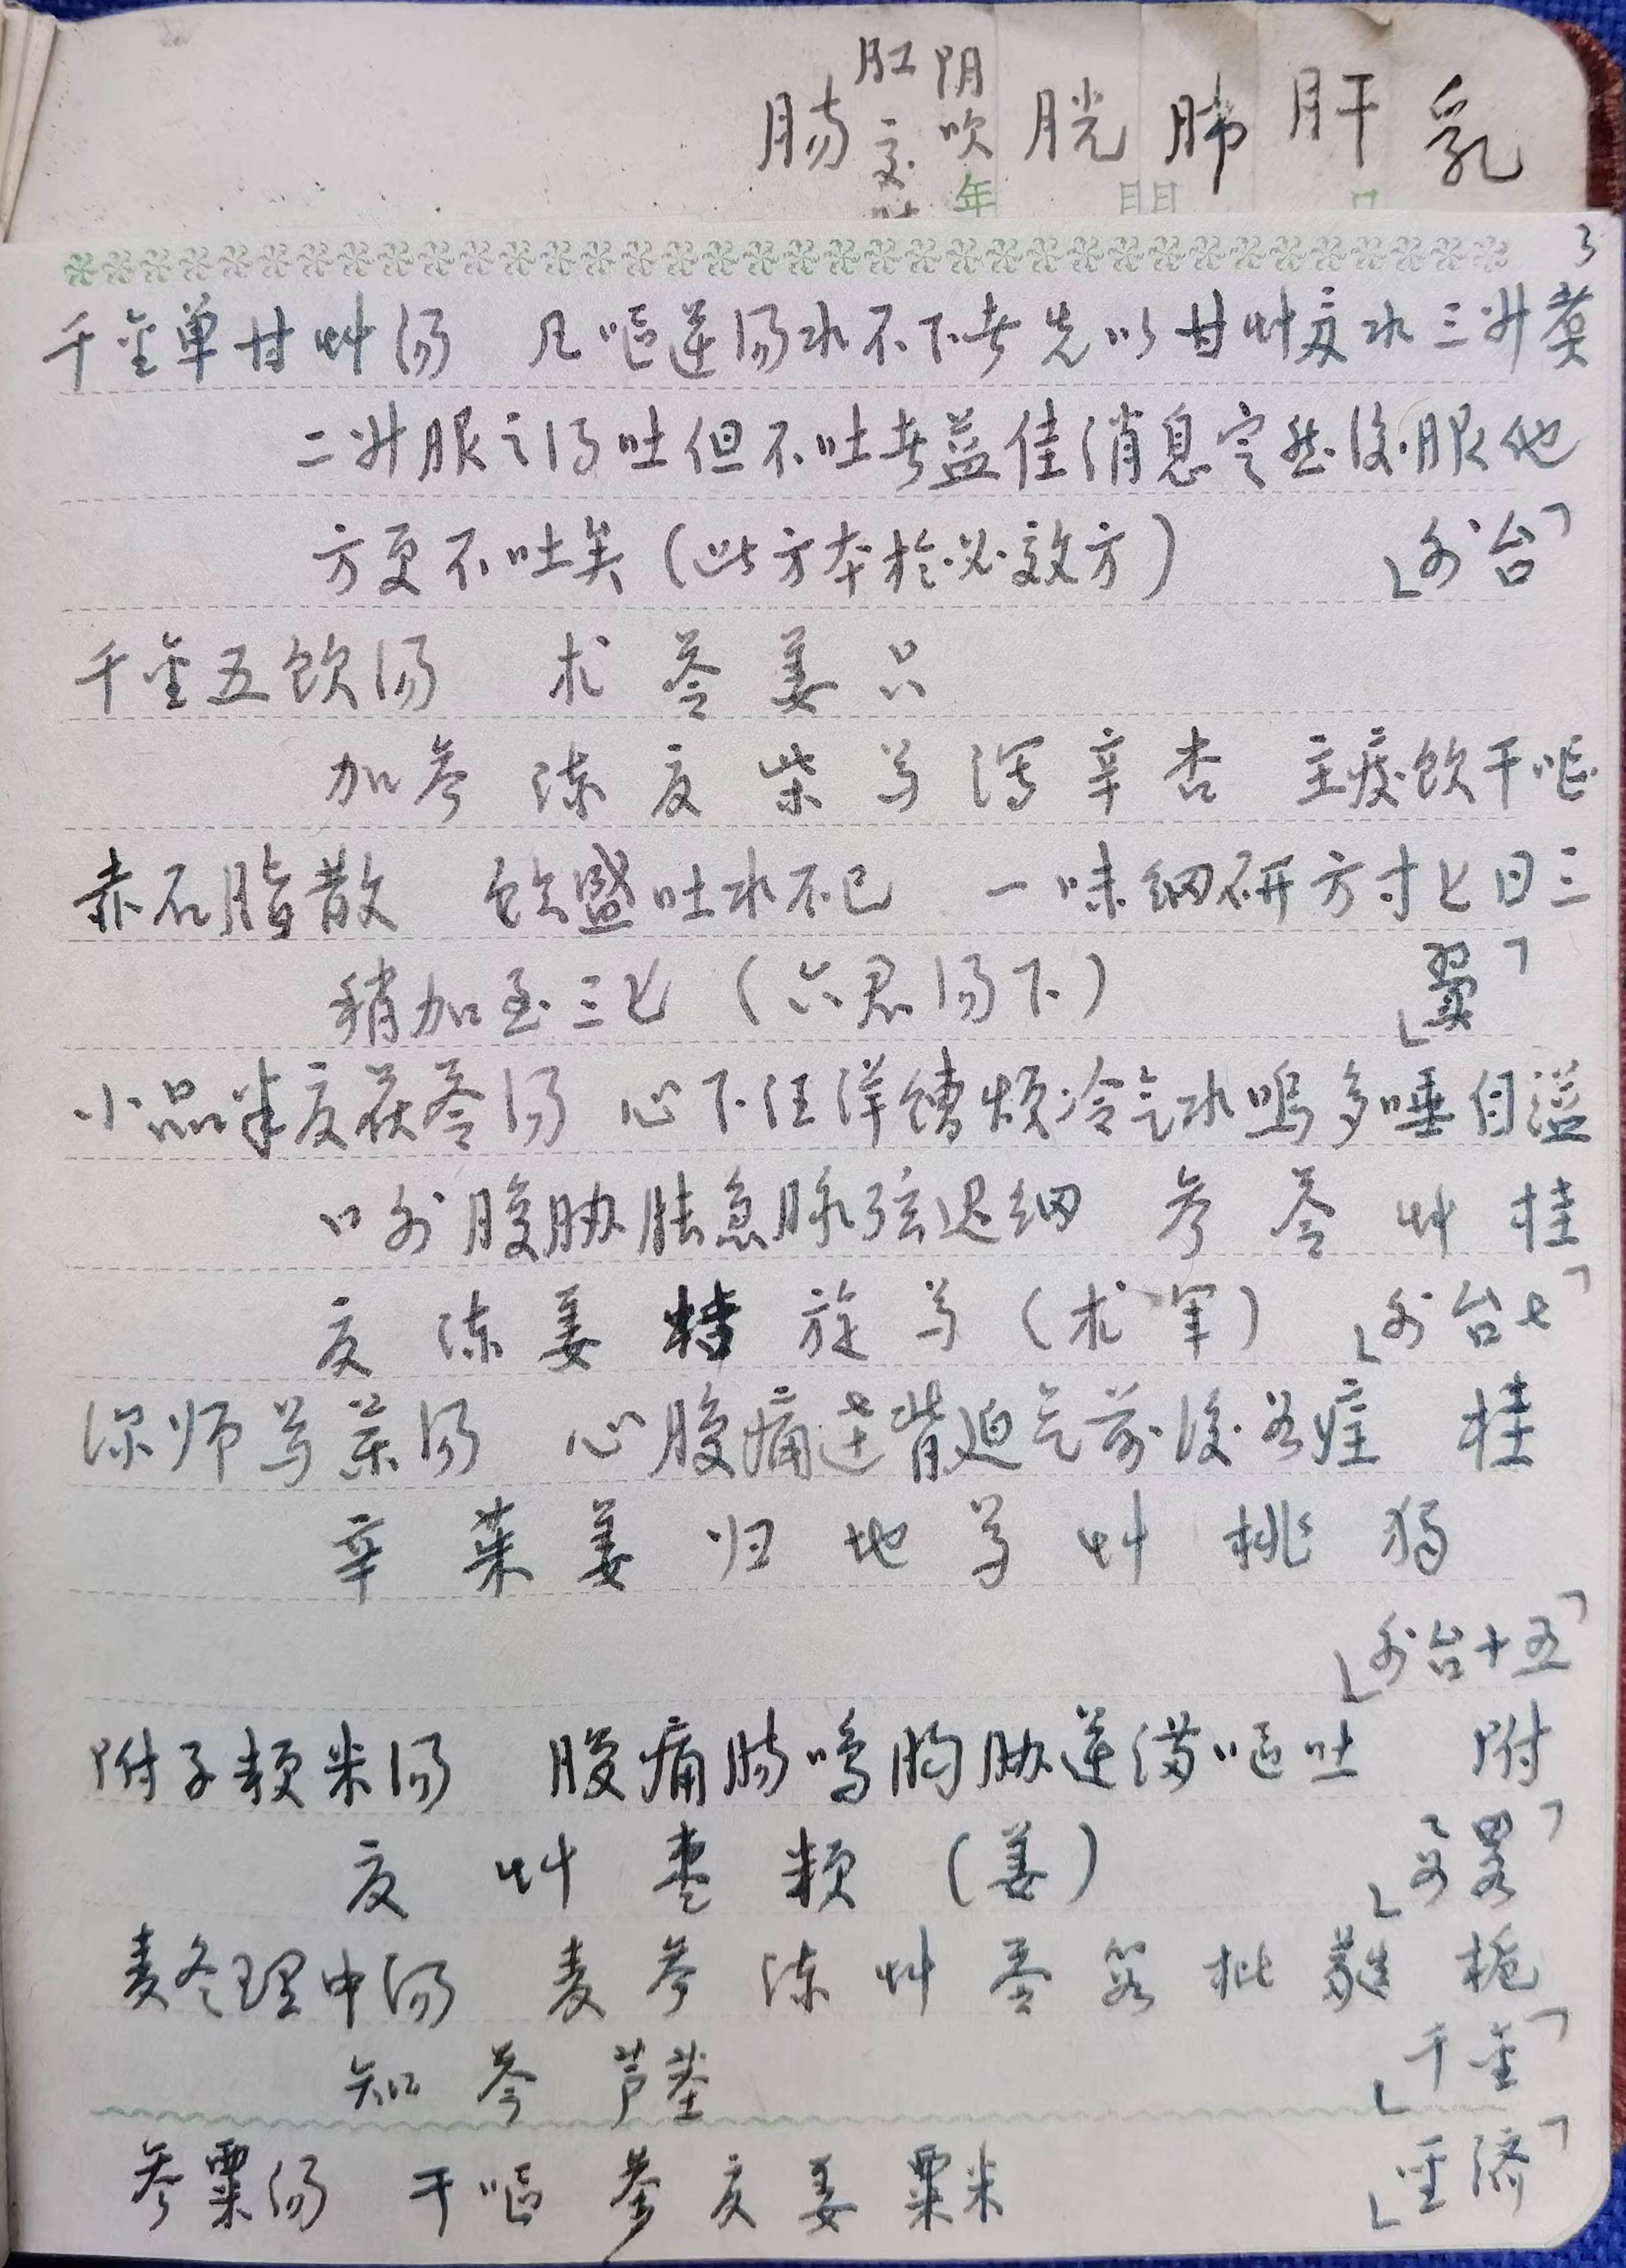 肠 肛交 阴吹 胱 肺 肝 乳
年
3
千金单甘艸汤 凡呕逆汤水不下者先以甘艸 水三升煮
二升服之得吐但不吐者益佳消息定然後服他
方更不吐矣(此方本於必效方) 「外台」
千金五飲汤 术 苓 姜 只
加参 陈 夏 柴 芍 泻 辛 杏 主痰飲干呕
赤石脂散 飲盛吐水不已 一味细研方寸匕日三
稍加至三匕(六君汤下) 「翼」
小品半夏茯苓汤 心下汪洋嘈烦冷气水鸣多唾自溢
口外腹胁胀急脉弦迟细 参 苓 艸 桂
夏 陈 姜 桔 旋 芍(术 军) 「外台七」
深师 汤 心腹痛连背迫气前後 痓 桂
辛 萸 姜 归 地 芍 艸 桃 独
「外台十五」
附子粳米汤 腹痛肠鸣胸胁逆满呕吐 附
夏 艸 枣 粳(姜) 「 畧」
麦冬理中汤 麦 参 陈 艸 苓 枇 栀
知 芦茎 「千金」
参粟汤 干呕 参 夏 姜 粟米 「圣济」